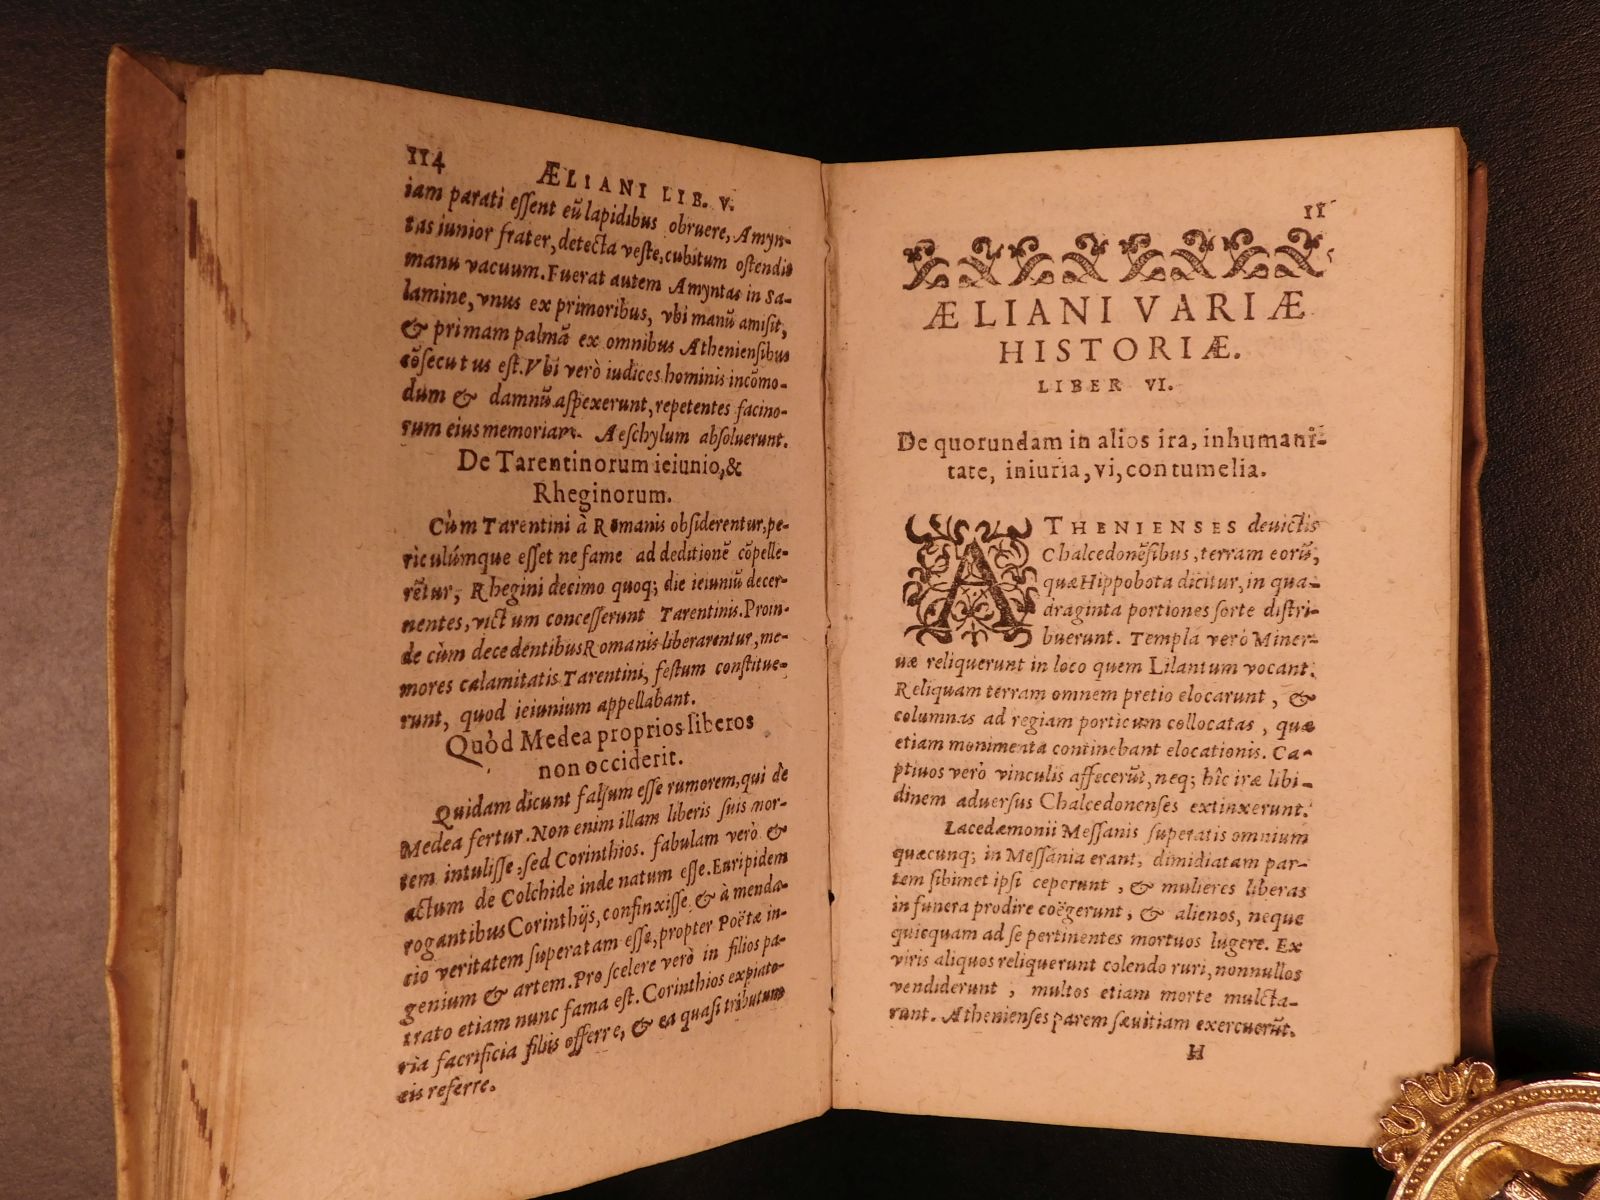 114
ÆLIANI LIB. V.
iam parati essent eũ lapidibus obruere, Amyn-
tas iunior frater, detecta veste, cubitum ostendit
manu vacuum. Fuerat autem Amyntas in Sa-
lamine, vnus ex primoribus, vbi manũ amisit,
& primam palmã ex omnibus Atheniensibus
cõsecutus est. Vbi verò iudices hominis incõmo-
dum & damnũ aspexerunt, repetentes facino-
rum eius memoriam. Aeschylum absoluerunt.
De Tarentinorum ieiunio, &
Rheginorum.
Cùm Tarentini à Romanis obsiderentur, pe-
riculúmque esset ne fame ad deditionẽ cõpelle-
rẽtur, Rhegini decimo quoq; die ieiuniũ decer-
nentes, victum concesserunt Tarentinis. Proin-
de cùm decedentibus Romanis liberarentur, me-
mores calamitatis Tarentini, festum constitue-
runt, quod ieiunium appellabant.
Quòd Medea proprios liberos
non occiderit.
Quidam dicunt falsum esse rumorem, qui de
Medea fertur. Non enim illam liberis suis mor-
tem intulisse, sed Corinthios. fabulam verò &
actum de Colchide inde natum esse. Euripidem
rogantibus Corinthijs, confinxisse & à menda-
cio veritatem superatam esse, propter Poëtæ in-
genium & artem. Pro scelere verò in filios pa-
trato etiam nunc fama est. Corinthios expiato-
ria sacrificia filiis offerre, & ea quasi tributum
eis referre.
11
ÆLIANI VARIÆ
HISTORIÆ.
LIBER VI.
De quorundam in alios ira, inhumani-
tate, iniuria, vi, contumelia.
ATHENIENSES deuictis
Chalcedonẽsibus, terram eorũ,
quæ Hippobota dicitur, in qua-
draginta portiones sorte distri-
buerunt. Templa verò Miner-
uæ reliquerunt in loco quem Lilantum vocant.
Reliquam terram omnem pretio elocarunt, &
columnas ad regiam porticum collocatas, quæ
etiam monimenta continebant elocationis. Ca-
ptiuos verò vinculis affecerũt, neq; hîc iræ libi-
dinem aduersus Chalcedonenses extinxerunt.
Lacedæmonii Messanis superatis omnium
quæcunq; in Messania erant, dimidiatam par-
tem sibimet ipsi ceperunt, & mulieres liberas
in funera prodire coëgerunt, & alienos, neque
quicquam ad se pertinentes mortuos lugere. Ex
viris aliquos reliquerunt colendo ruri, nonnullos
vendiderunt, multos etiam morte mulcta-
runt. Athenienses parem sæuitiam exercuerũt.
H